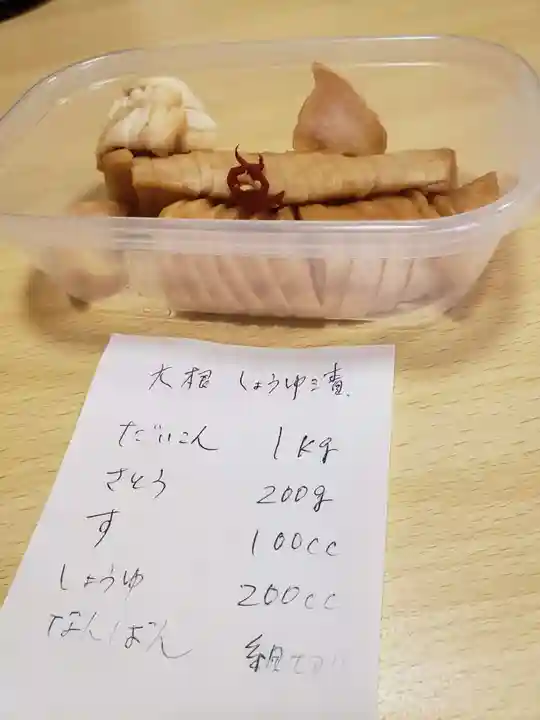 大根 しょうゆ漬
だいこん 1kg
さとう 200g
す 100cc
しょうゆ 200cc
なんばん